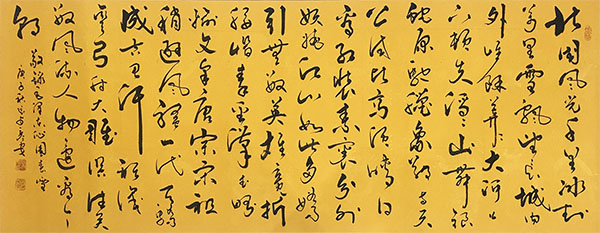 北国风光千里冰封
万里雪飘望长城内
外惟余莽莽大河上
下顿失滔滔山舞银
蛇原驰蜡象欲与天
公试比高须晴日
看红装素裹分外
妖娆江山如此多娇
引无数英雄竞折
腰惜秦皇汉武略
输文采唐宗宋祖
稍逊风骚一代天骄
成吉思汗只识
弯弓射大雕俱往矣
数风流人物还看今
朝
敬录毛泽东沁园春雪
庚子秋月